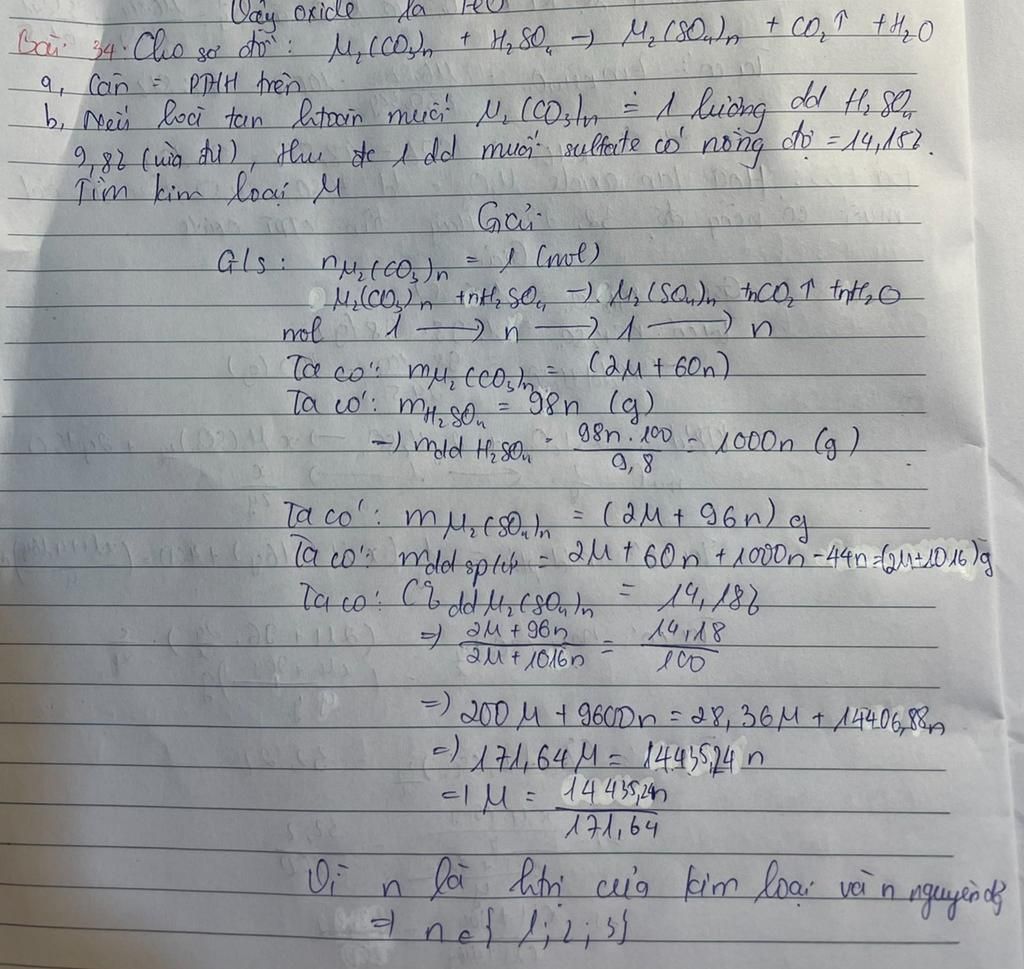 Vậy oxide là FeO
Bài 34. Cho sơ đồ: M₂(CO₃)n + H₂SO₄ → M₂(SO₄)n + CO₂↑ + H₂O
a, Cân = PTHH trên
b, Nếu hoà tan htoàn muối M₂(CO₃)n = 1 lượng dd H₂SO₄
9,8% (vừa đủ), thu đc 1 dd muối sulfate có nồng độ = 14,18%.
Tìm kim loại M
Giải:
G/s: nM₂(CO₃)n = 1 (mol)
M₂(CO₃)n +nH₂SO₄ → M₂(SO₄)n +nCO₂↑ +nH₂O
mol 1 → n → 1 → n
Ta có: mM₂(CO₃)n = (2M + 60n)
Ta có: mH₂SO₄ = 98n (g)
→ mdd H₂SO₄ = 98n . 100 / 9,8 = 1000n (g)
Ta có: mM₂(SO₄)n = (2M + 96n) g
Ta có: mdd spứ = 2M + 60n + 1000n - 44n =(2M+1016)g
Ta có: C% dd M₂(SO₄)n = 14,18%
⇒ 2M + 96n / 2M + 1016n = 14,18 / 100
⇒ 200M + 9600n = 28,36M + 14406,88n
⇒ 171,64M = 14435,24 n
⇒ M = 14435,24n / 171,64
Vì n là htrị của kim loại và n nguyên dg
⇒ n ∈ { 1; 2; 3}